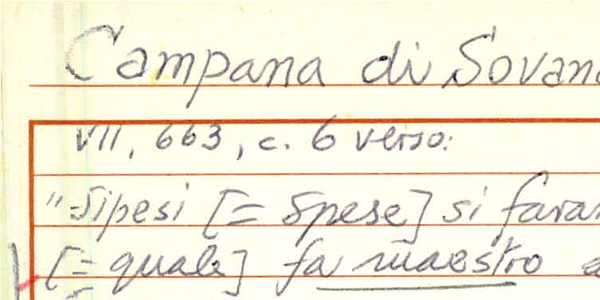 Campana di Sovana
VII, 663, c. 6 verso:
"Sipesi [= Spese] si faran
[= quale] fa maestro a